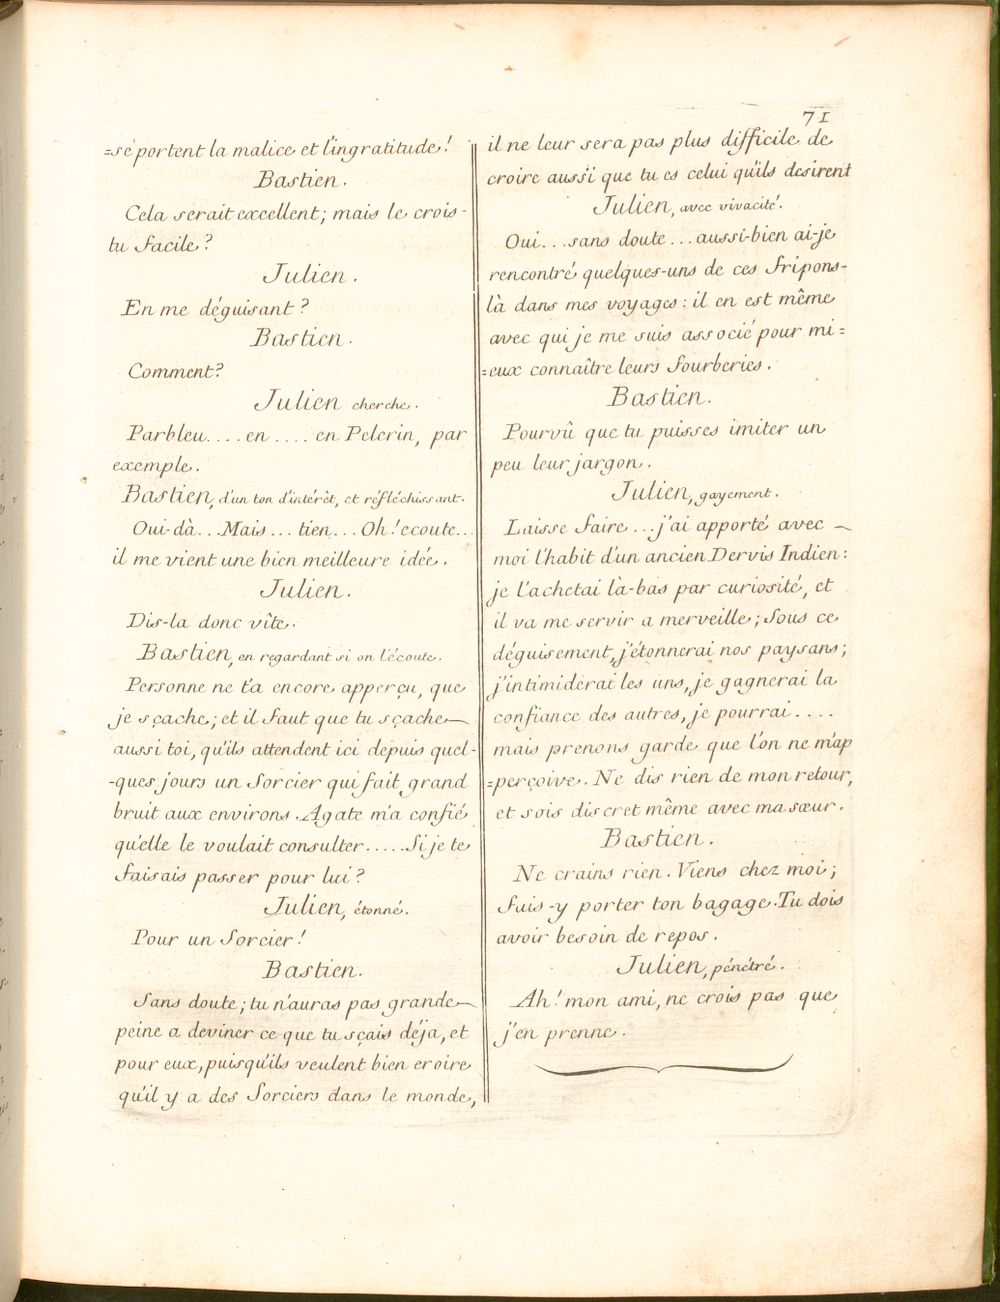 71
=sé portent la malice et l'ingratitude!
Bastien.
Cela serait excellent; mais le crois-
tu facile?
Julien.
En me déguisant?
Bastien.
Comment?
Julien cherche.
Parbleu.... en .... en Pelerin, par
exemple.
Bastien, d'un ton d'intérêt, et réfléchissant.
Oui-dà... Mais... tien... Oh! ecoute...
il me vient une bien meilleure idée.
Julien.
Dis-la donc vîte.
Bastien, en regardant si on l'écoute.
Personne ne t'a encore apperçu, que
je sçache; et il faut que tu sçache
aussi toi, qu'ils attendent ici depuis quel-
-ques jours un Sorcier qui fait grand
bruit aux environs. Agate m'a confié
qu'elle le voulait consulter..... Si je te
faisais passer pour lui?
Julien, étonné.
Pour un Sorcier!
Bastien.
Sans doute; tu n'auras pas grande
peine a deviner ce que tu sçais déja, et
pour eux, puisqu'ils veulent bien croire
qu'il y a des Sorciers dans le monde,
il ne leur sera pas plus difficile de
croire aussi que tu es celui qu'ils desirent
Julien, avec vivacité.
Oui... sans doute... aussi-bien ai-je
rencontré quelques-uns de ces fripons-
là dans mes voyages: il en est même
avec qui je me suis associé pour mi=
=eux connaître leurs fourberies.
Bastien.
Pourvû que tu puisses imiter un
peu leur jargon.
Julien, gayement.
Laisse faire... j'ai apporté avec
moi l'habit d'un ancien Dervis Indien:
je l'achetai là-bas par curiosité, et
il va me servir a merveille; Sous ce
déguisement, j'étonnerai nos paysans;
j'intimiderai les uns, je gagnerai la
confiance des autres, je pourrai....
mais prenons garde que l'on ne m'ap
=perçoive. Ne dis rien de mon retour,
et sois discret même avec ma sœur.
Bastien.
Ne crains rien. Viens chez moi;
fais-y porter ton bagage. Tu dois
avoir besoin de repos.
Julien, pénétré.
Ah! mon ami, ne crois pas que
j'en prenne.